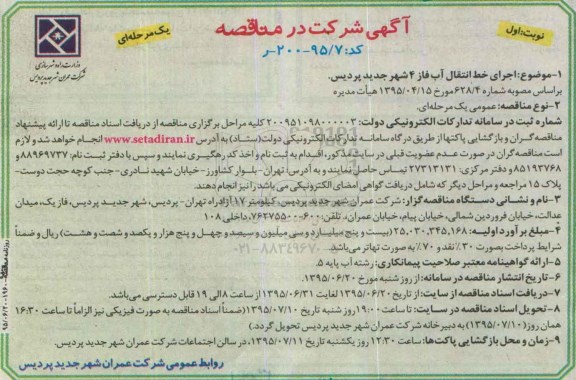 نوبت اول
آگهی شرکت در مناقصه
یک مرحله‌ای
کد: ۹۵/۷-۲۰۰-ر
وزارت راه و شهرسازی
شرکت عمران شهر جدید پردیس
۱-موضوع: اجرای خط انتقال آب فاز ۴ شهر جدید پردیس.
براساس مصوبه شماره ۶۲۸/۴ مورخ ۱۳۹۵/۰۴/۱۵ هیأت مدیره
۲-نوع مناقصه: عمومی یک مرحله‌ای.
شماره ثبت در سامانه تدارکات الکترونیکی دولت: ۲۰۰۹۵۱۰۹۸۰۰۰۰۰۳ کلیه مراحل برگزاری مناقصه از دریافت اسناد مناقصه تا ارائه پیشنهاد
مناقصه گران و بازگشایی پاکتها از طریق درگاه سامانه تدارکات الکترونیکی دولت(ستاد) به آدرس www.setadiran.ir انجام خواهد شد و لازم
است مناقصه گران در صورت عدم عضویت قبلی در سایت مذکور، اقدام به ثبت نام و اخذ کد رهگیری نمایند و سپس با دفتر ثبت نام: ۸۸۹۶۹۷۳۷ و
۸۵۱۹۳۷۶۸ و دفتر مرکزی: ۲۷۳۱۳۱۳۱ تماس حاصل نمایند و به آدرس: تهران- بلوار کشاورز- خیابان شهید نادری- جنب کوچه حجت دوست-
پلاک ۱۵ مراجعه و مراحل دیگر که شامل دریافت گواهی امضای الکترونیکی می باشد را نیز انجام دهند.
۳-نام و نشانی دستگاه مناقصه گزار: شرکت عمران شهر جدید پردیس، کیلومتر ۱۷ آزادراه تهران - پردیس، شهر جدید پردیس، فاز یک، میدان
عدالت، خیابان فروردین شمالی، خیابان پیام، خیابان عمران، تلفن: ۶۰۰-۷۶۲۷۵۵۰۰، داخلی ۱۰۸
۴-مبلغ برآورد اولیه: ۲۵,۰۳۰,۳۴۵,۱۶۸ (بیست و پنج میلیارد و سی میلیون و سیصد و چهل و پنج هزار و یکصد و شصت و هشت) ریال و ضمناً
شرایط پرداخت بصورت ۳۰٪ نقد و ۷۰٪ به صورت تهاتر می باشد.
۵-ارائه گواهینامه معتبر صلاحیت پیمانکاری: رشته آب پایه ۵.
۶-تاریخ انتشار مناقصه در سامانه: از روز شنبه مورخ ۱۳۹۵/۰۶/۲۰.
۷-دریافت اسناد مناقصه از سایت: از تاریخ ۱۳۹۵/۰۶/۲۰ لغایت ۱۳۹۵/۰۶/۳۱ از ساعت ۸ الی ۱۹ قابل دسترسی می باشد.
۸-تحویل اسناد مناقصه در سایت: تا ساعت ۱۹:۰۰ روز شنبه تاریخ ۱۳۹۵/۰۷/۱۰ (ضمناً اسناد مناقصه به صورت فیزیکی نیز الزاماً تا ساعت ۱۶:۳۰
همان روز (۱۳۹۵/۰۷/۱۰) به دبیرخانه شرکت عمران شهر جدید پردیس تحویل گردد.)
۹-زمان و محل بازگشایی پاکت‌ها: ساعت ۱۲:۳۰ روز یکشنبه تاریخ ۱۳۹۵/۰۷/۱۱، در سالن اجتماعات شرکت عمران شهر جدید پردیس
روابط عمومی شرکت عمران شهر جدید پردیس
۰۲۱-۸۸۳۴۹۶۷۰